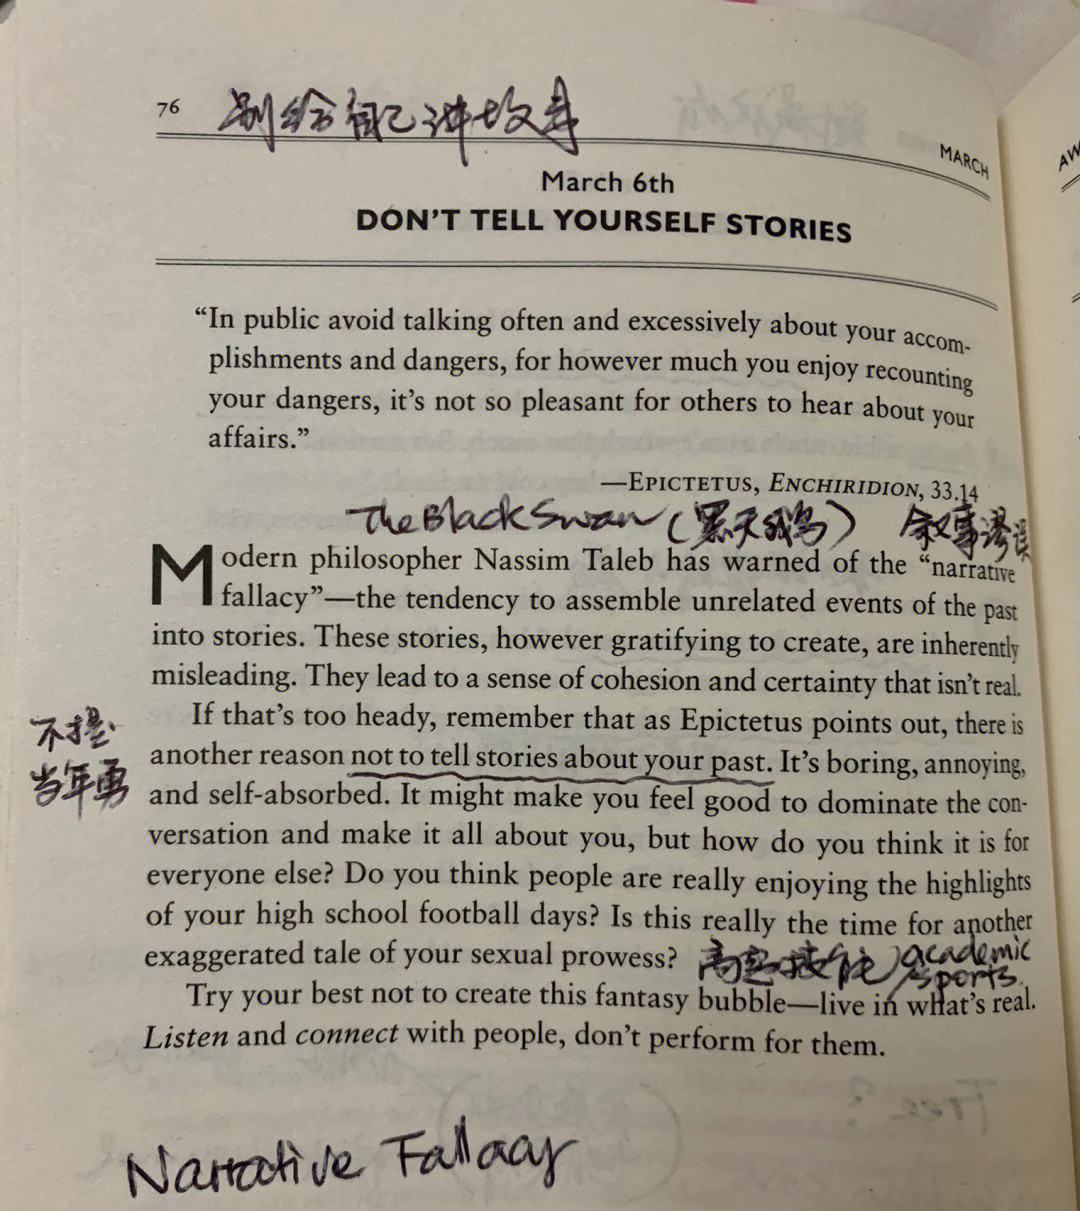 76 别给自己讲故事
MARCH
March 6th
DON'T TELL YOURSELF STORIES
“In public avoid talking often and excessively about your accom-
plishments and dangers, for however much you enjoy recounting
your dangers, it's not so pleasant for others to hear about your
affairs.”
—EPICTETUS, ENCHIRIDION, 33.14
The Black Swan (黑天鹅) 叙事谬误
Modern philosopher Nassim Taleb has warned of the “narrative
fallacy”—the tendency to assemble unrelated events of the past
into stories. These stories, however gratifying to create, are inherently
misleading. They lead to a sense of cohesion and certainty that isn't real.
If that's too heady, remember that as Epictetus points out, there is
another reason not to tell stories about your past. It's boring, annoying,
不提
当年勇
and self-absorbed. It might make you feel good to dominate the con-
versation and make it all about you, but how do you think it is for
everyone else? Do you think people are really enjoying the highlights
of your high school football days? Is this really the time for another
exaggerated tale of your sexual prowess?
academic
/sports
Try your best not to create this fantasy bubble—live in what's real.
Listen and connect with people, don't perform for them.
Narrative Fallacy
AW